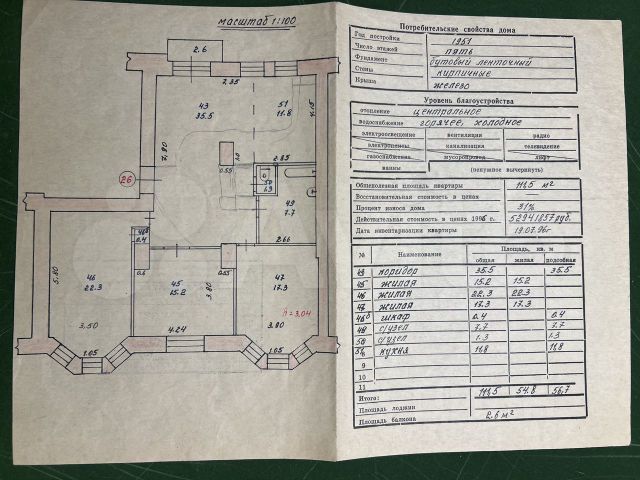 масштаб 1:100
2.6
2.35
43
35.5
51
11.8
7.80
0.55
2.85
50
1.3
49
7.7
26
2.66
0.4
0.6
0.55
5.80
46
22.3
45
15.2
3.80
47
17.3
h=3,04
3.50
4.24
3.80
1.05
1.05
Потребительские свойства дома
Год постройки 1951
Число этажей пять
Фундамент бутовый ленточный
Стены кирпичные
Крыша железо
Уровень благоустройства
отопление центральное
водоснабжение горячее, холодное
электроосвещение вентиляция радио
электроплиты канализация телевидение
газоснабжение мусоропровод лифт
ванны (ненужное вычеркнуть)
Общеполезная площадь квартиры 111,5 м²
Восстановительная стоимость в ценах —
Процент износа дома 31%
Действительная стоимость в ценах 1996 г. 52941857 руб.
Дата инвентаризации квартиры 19.07.96г
№ Наименование Площадь, кв. м
общая жилая подсобная
43 коридор 35.5 35.5
45 жилая 15.2 15.2
46 жилая 22.3 22.3
47 жилая 17.3 17.3
шкаф 0.4 0.4
с/узел 7.7 7.7
50 с/узел 1.3 1.3
кухня 11,8 11,8
9
10
11
Итого: 111,5 54.8 56,7
Площадь лоджии
Площадь балкона 2.6 м²